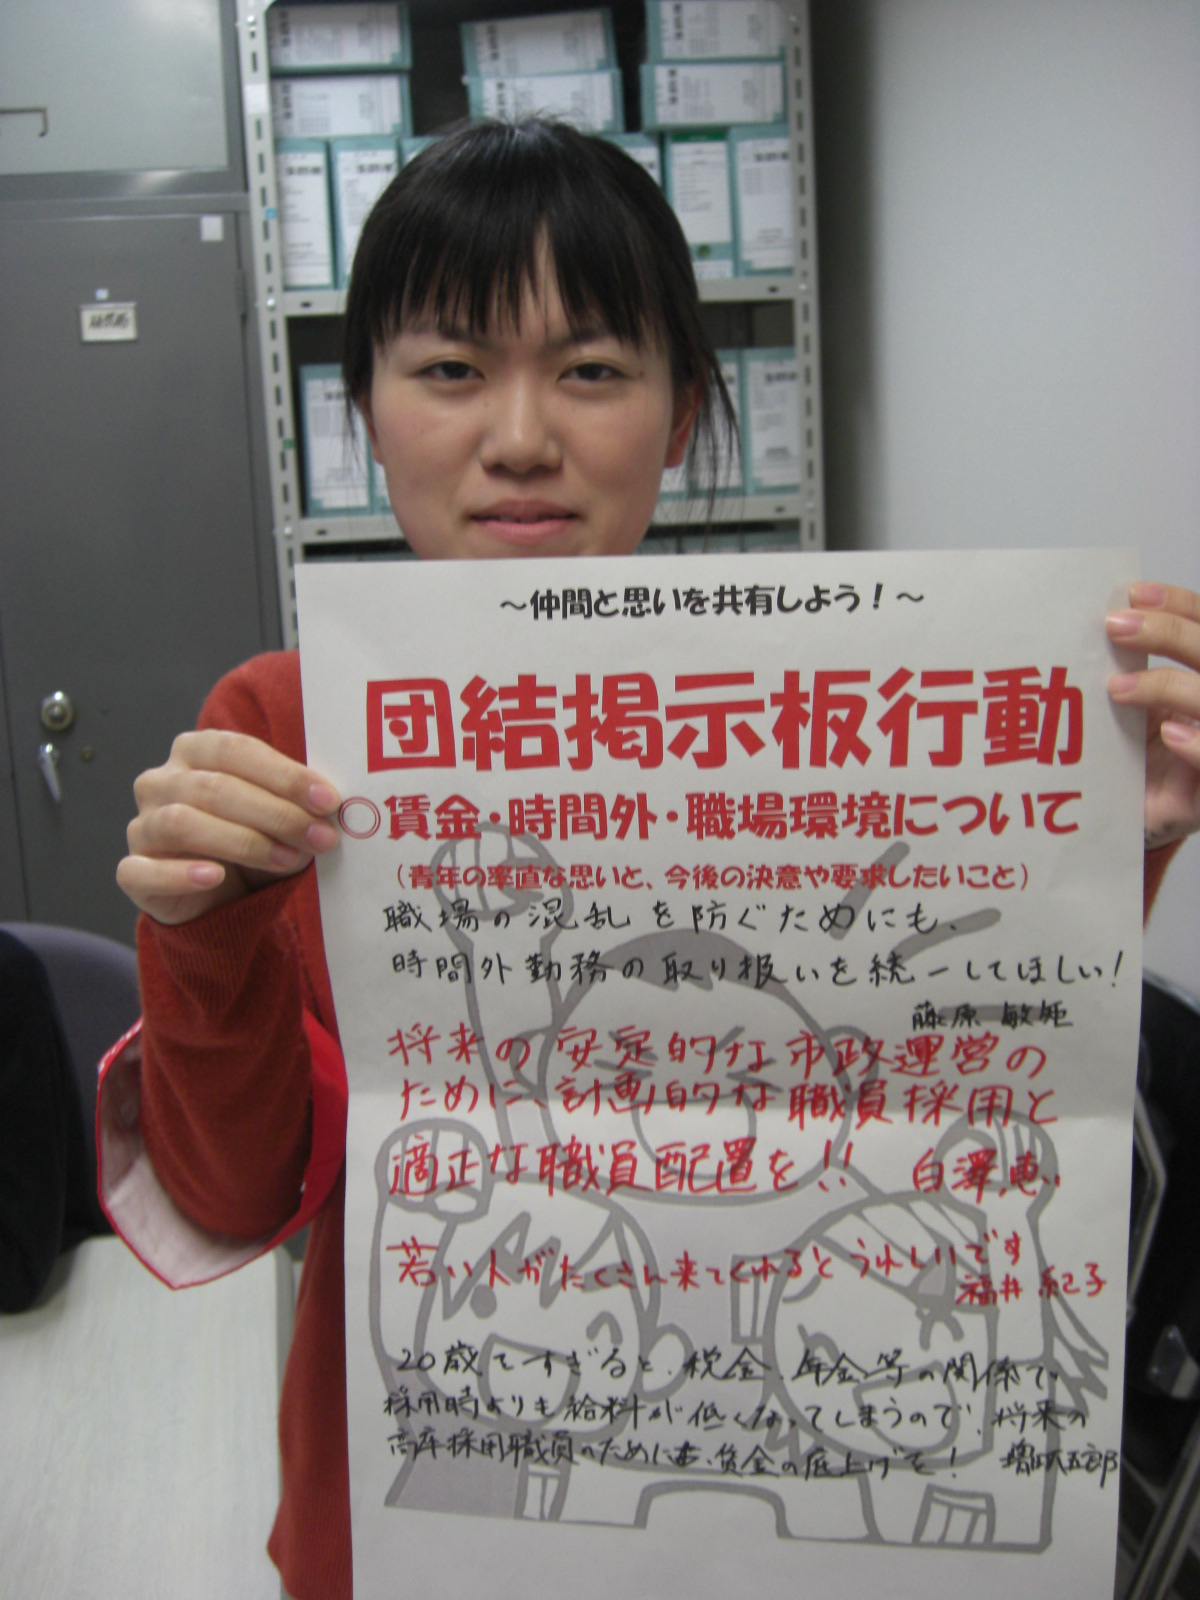 ～仲間と思いを共有しよう！～
団結掲示板行動
◎賃金・時間外・職場環境について
（青年の率直な思いと、今後の決意や要求したいこと）
職場の混乱を防ぐためにも、
時間外勤務の取り扱いを統一してほしい！
藤原 敏矩
将来の安定的な市政運営の
ために、計画的な職員採用と
適正な職員配置を!! 白澤 恵
若い人がたくさん来てくれるとうれしいです
福井 紀子
20歳をすぎると、税金、年金等の関係で、
採用時よりも給料が低くなってしまうので、将来の
高卒採用職員のためにも、賃金の底上げを！